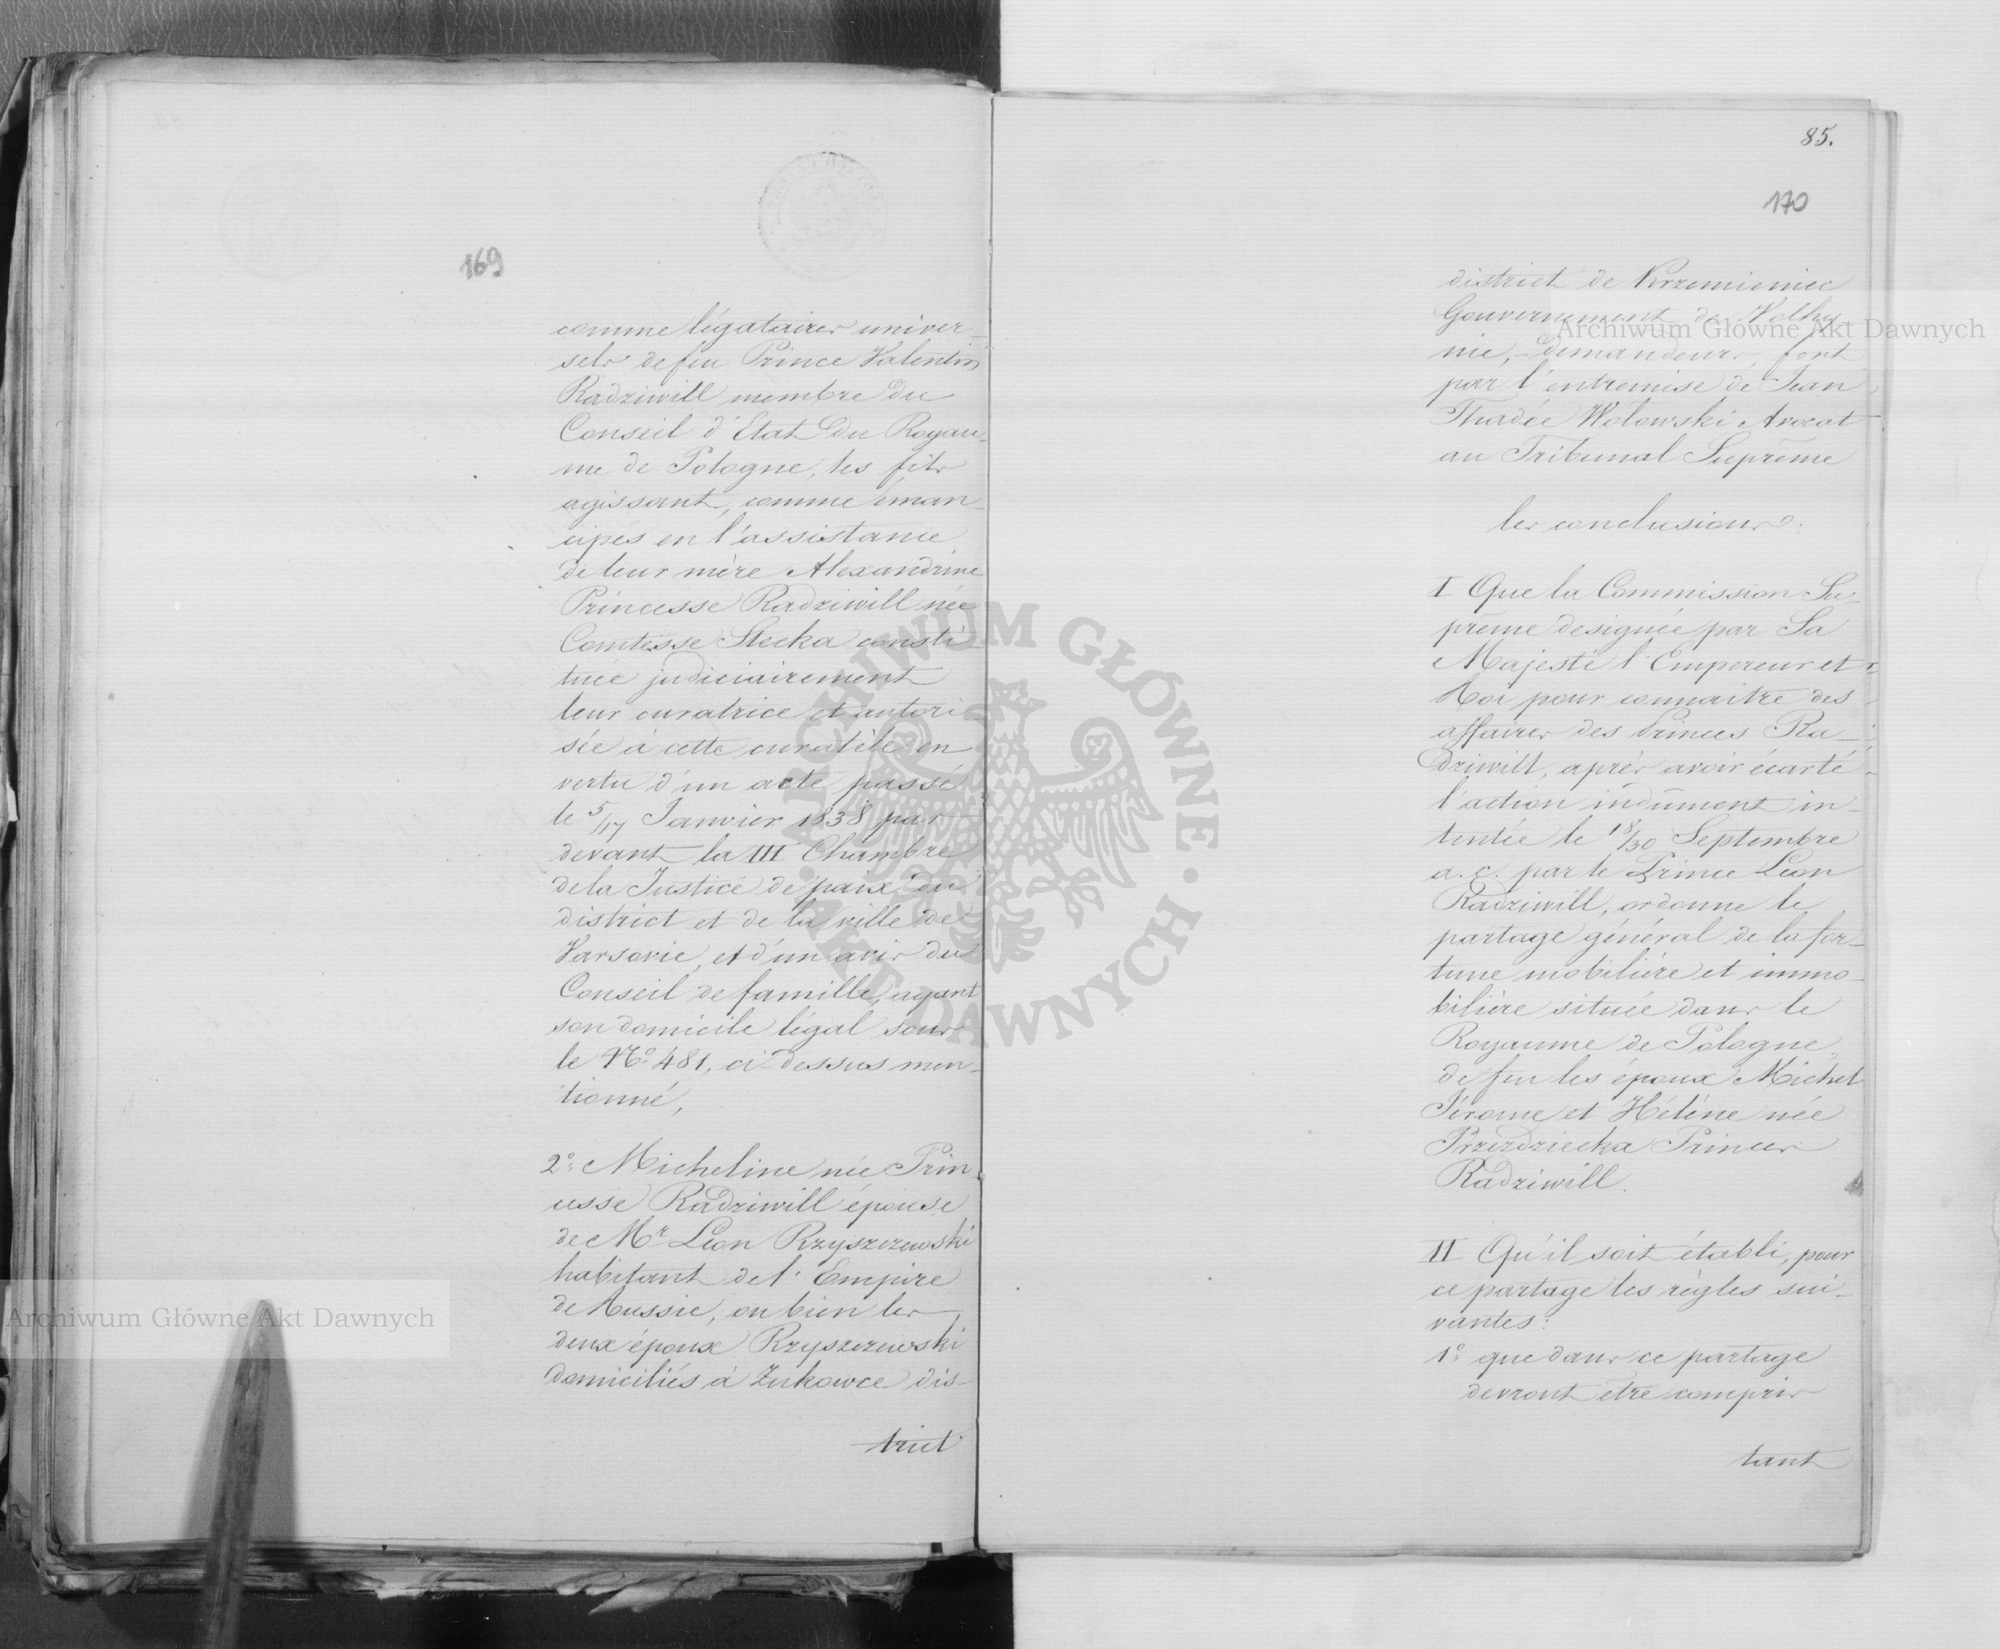 169
comme légataires univer-
sels de feu Prince Valentin
Radziwill membre du
Conseil d'Etat du Royau-
me de Pologne, les fils
agissant, comme éman-
cipés en l'assistance
de leur mère Alexandrine
Princesse Radziwill née
Comtesse Stecka consti-
tuée judiciairement
leur curatrice et autori-
sée à cette curatèle en
vertu d'un acte passé
le 5/17 Janvier 1838 par
devant la III Chambre
de la Justice de paix du
district et de la ville de
Varsovie, et d'un avis du
Conseil de famille, ayant
son domicile légal sous
le No 481, ci-dessus men-
tionné,
2o: Micheline née Prin
cesse Radziwill épouse
de Mr Léon Rzyszczewski
habitant de l'Empire
de Russie, ou bien les
deux époux Rzyszczewski
domiciliés à Zukowce dis-
trict
85.
170
district de Krzemieniec
Gouvernement de Volhy
nie, - demandeurs, font
par l'entremise de Jean
Thadée Wolowski Avocat
au Tribunal Suprême
les conclusions:
I Que la Commission Su-
prême designée par Sa
Majesté l'Empereur et
Roi pour connaitre des
affaires des Princes Ra-
dziwill, après avoir écarté
l'action indûment in-
tentée le 18/30 Septembre
a. c. par le Prince Léon
Radziwill, ordonne le
partage général de la for-
tune mobilière et immo-
bilière située dans le
Royaume de Pologne,
de feu les époux Michel
Jérome et Hélène née
Przezdziecka Princes
Radziwill.
II Qu'il soit établi, pour
ce partage les règles sui-
vantes:
1o: que dans ce partage
devront etre compris
tant
Archiwum Główne Akt Dawnych
Archiwum Główne Akt Dawnych
ARCHIWUM GŁÓWNE · AKT DAWNYCH ·